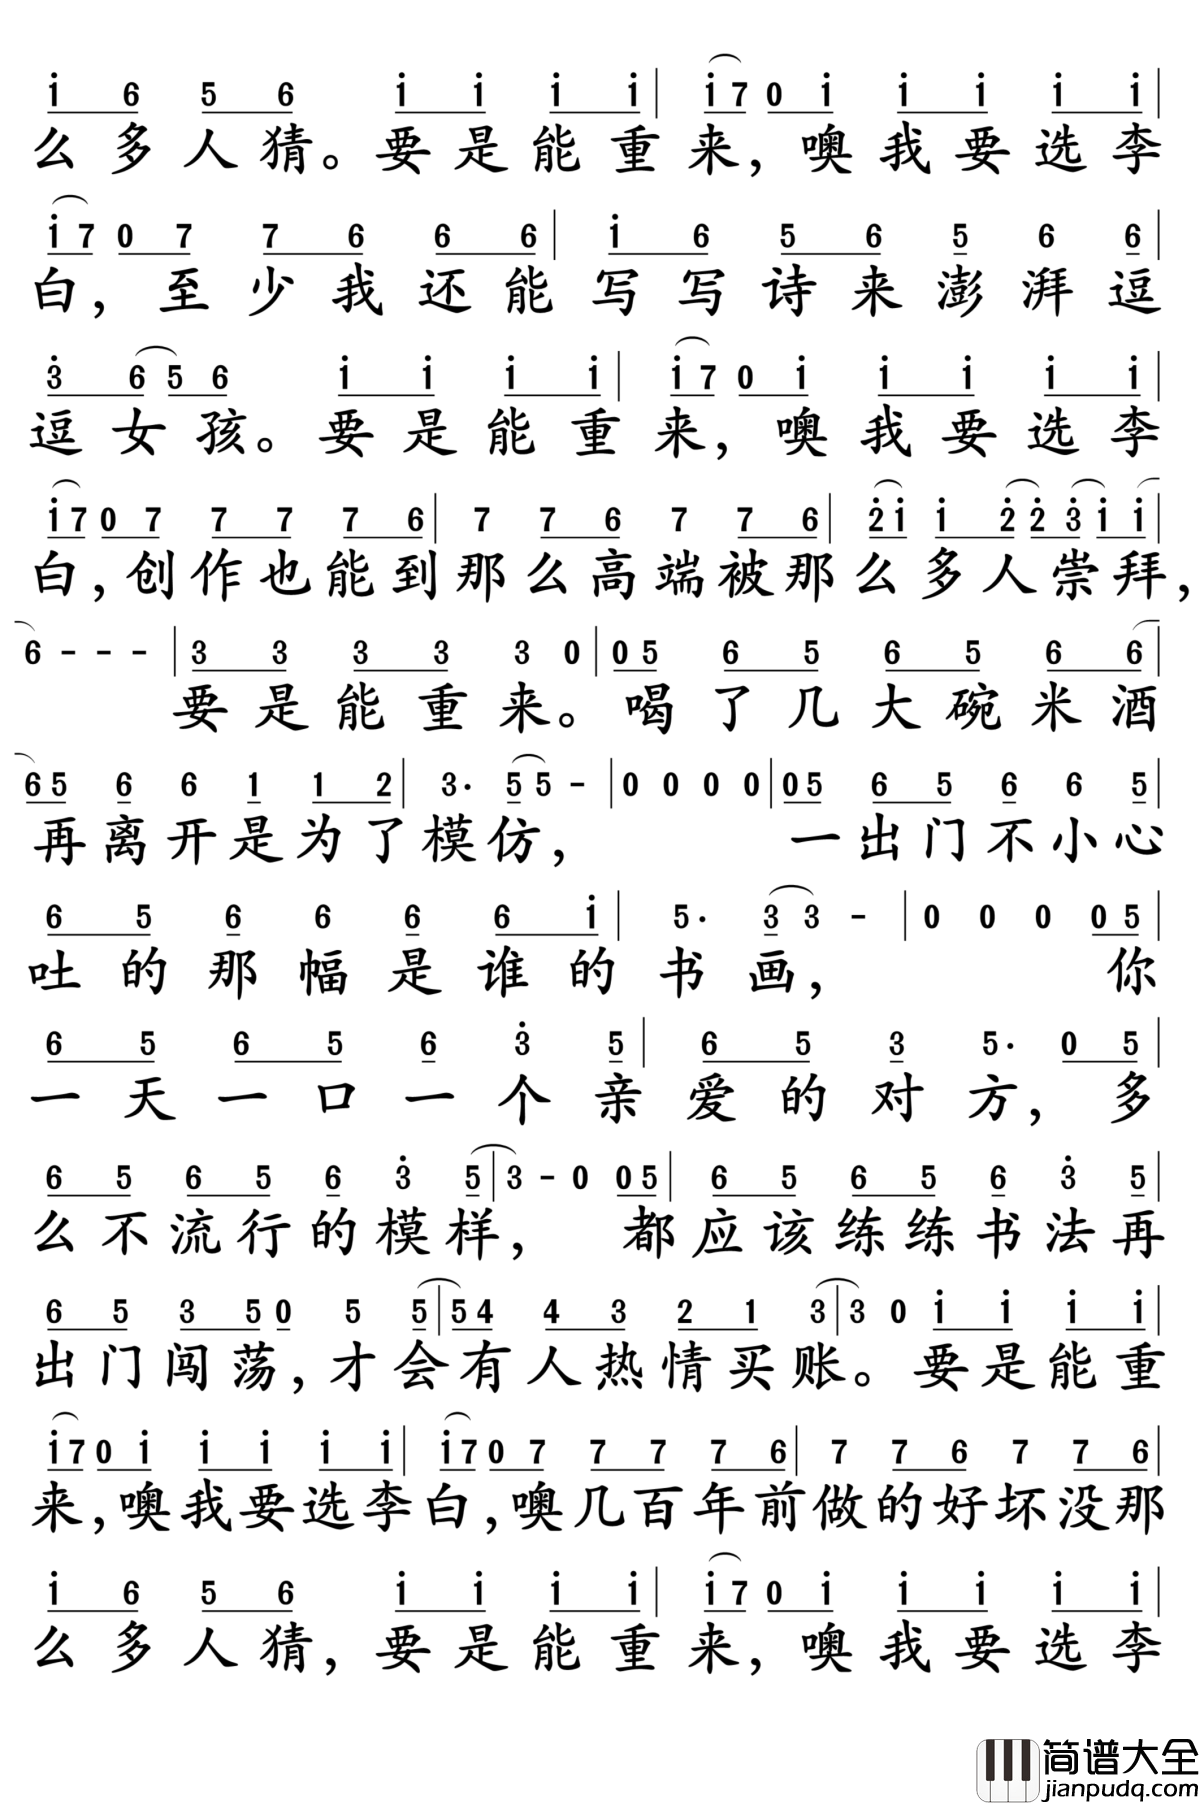 i 6 5 6 i i i i | i 7 0 i i i i i |
么多人猜。要是能重来,噢我要选李
i 7 0 7 7 6 6 6 | i 6 5 6 5 6 6 |
白,至少我还能写写诗来澎湃逗
3 6 5 6 i i i i | i 7 0 i i i i i |
逗女孩。要是能重来,噢我要选李
i 7 0 7 7 7 7 6 | 7 7 6 7 7 6 | 2 i i 2 2 3 i i |
白,创作也能到那么高端被那么多人崇拜,
6 - - - | 3 3 3 3 3 0 | 0 5 6 5 6 5 6 6 |
要是能重来。喝了几大碗米酒
6 5 6 6 1 1 2 | 3· 5 5 - | 0 0 0 0 | 0 5 6 5 6 6 5 |
再离开是为了模仿,一出门不小心
6 5 6 6 6 6 i | 5· 3 3 - | 0 0 0 0 5 |
吐的那幅是谁的书画,你
6 5 6 5 6 3 5 | 6 5 3 5· 0 5 |
一天一口一个亲爱的对方,多
6 5 6 5 6 3 5 | 3 - 0 0 5 | 6 5 6 5 6 3 5 |
么不流行的模样,都应该练练书法再
6 5 3 5 0 5 5 | 5 4 4 3 2 1 3 | 3 0 i i i i |
出门闯荡,才会有人热情买账。要是能重
i 7 0 i i i i i | i 7 0 7 7 7 7 6 | 7 7 6 7 7 6 |
来,噢我要选李白,噢几百年前做的好坏没那
i 6 5 6 i i i i | i 7 0 i i i i i |
么多人猜,要是能重来,噢我要选李
简谱大全
jianpudq.com